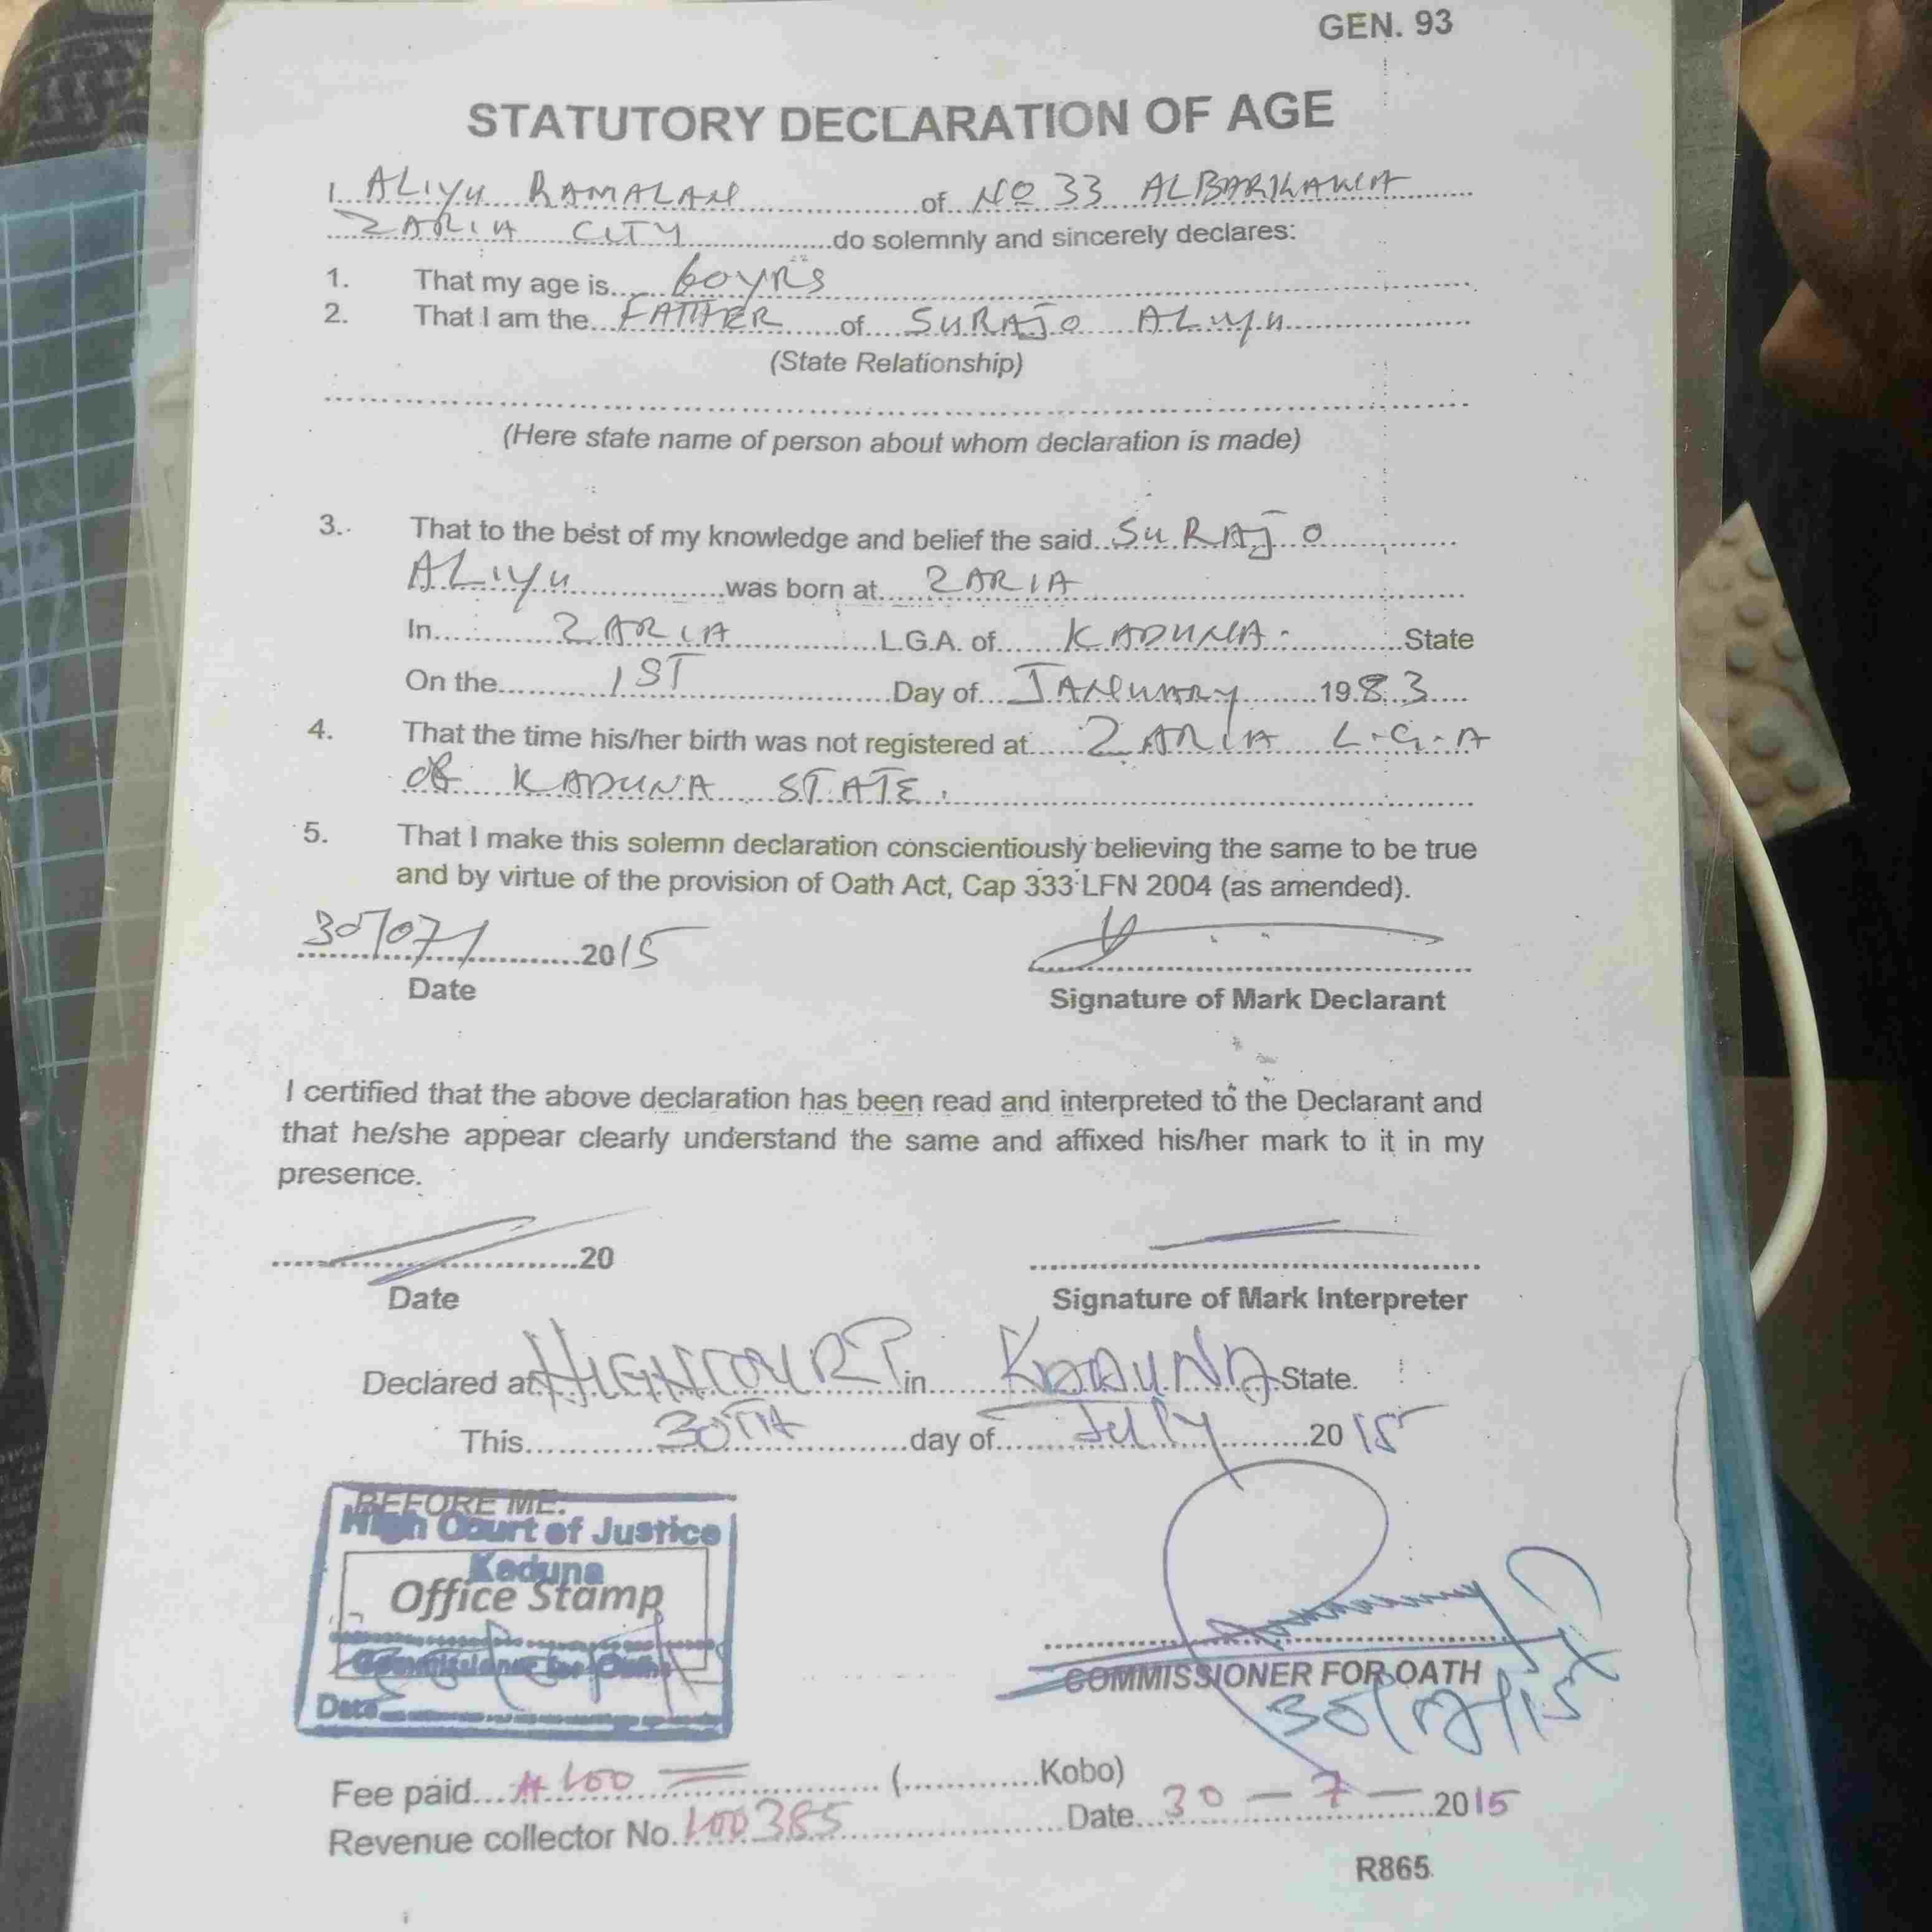 GEN. 93
STATUTORY DECLARATION OF AGE
I, ALIYU RAMALAN of NO 33 ALBARKAWA
ZARIA CITY do solemnly and sincerely declares:
1. That my age is 60YRS
2. That I am the FATHER of SURAJO ALIYU
(State Relationship)
(Here state name of person about whom declaration is made)
3. That to the best of my knowledge and belief the said SURAJO
ALIYU was born at ZARIA
In ZARIA L.G.A. of KADUNA. State
On the 1ST Day of JANUARY 1983
4. That the time his/her birth was not registered at ZARIA L.G.A
of KADUNA STATE.
5. That I make this solemn declaration conscientiously believing the same to be true
and by virtue of the provision of Oath Act, Cap 333 LFN 2004 (as amended).
30/07/ 2015
Date
Signature of Mark Declarant
I certified that the above declaration has been read and interpreted to the Declarant and
that he/she appear clearly understand the same and affixed his/her mark to it in my
presence.
20
Date
Signature of Mark Interpreter
Declared at HIGHCOURT in KADUNA State.
This 30TH day of July 2015
BEFORE ME:
High Court of Justice
Kaduna
Office Stamp
Commissioner for Oaths
Date
COMMISSIONER FOR OATH
30/07/15
Fee paid ₦100 = ( Kobo)
Revenue collector No. 100385 Date 30 - 7 - 2015
R865